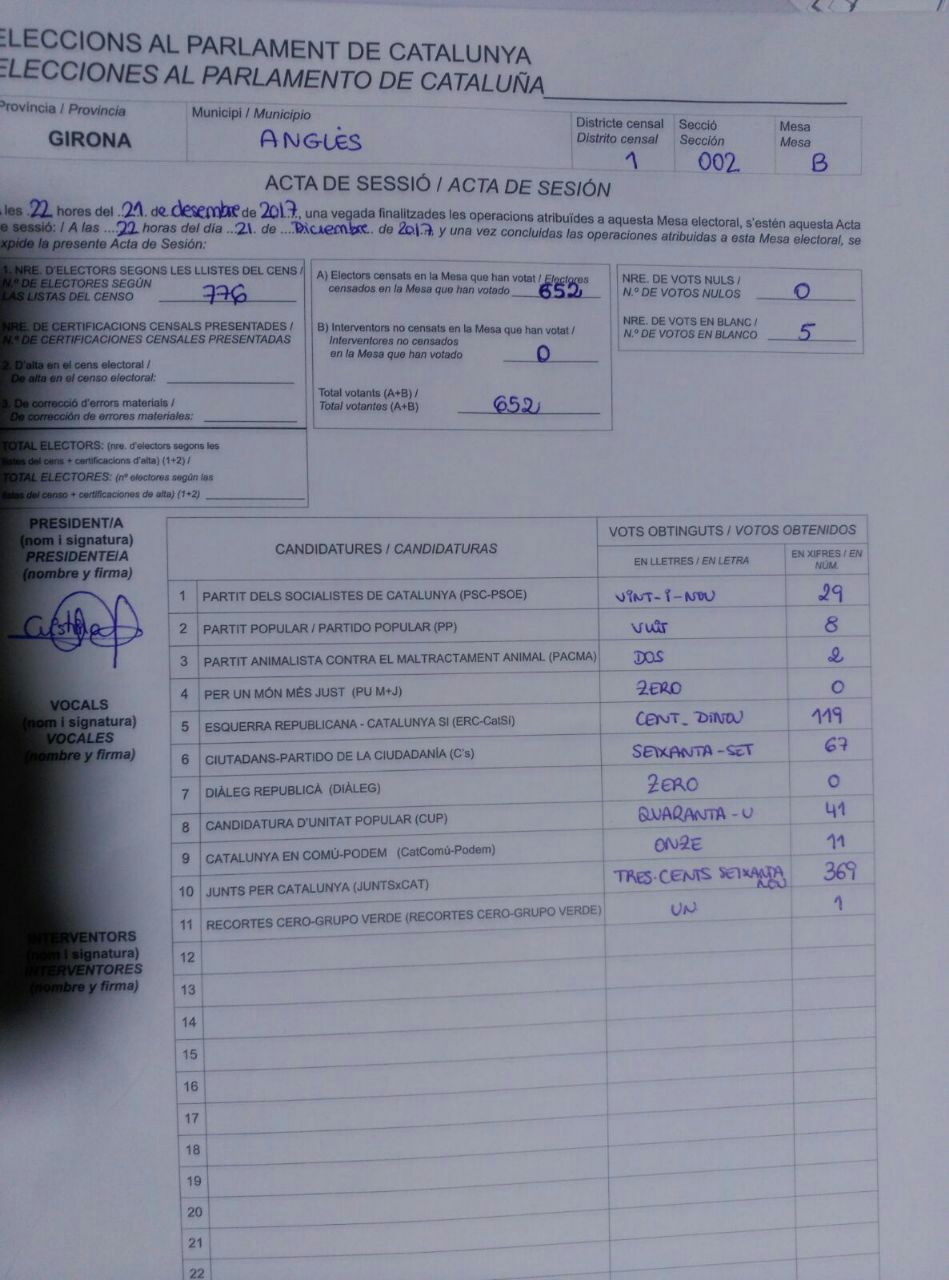 ELECCIONS AL PARLAMENT DE CATALUNYA
ELECCIONES AL PARLAMENTO DE CATALUÑA
Provincia / Provincia
GIRONA
Municipi / Municipio
ANGLÈS
Districte censal
Distrito censal
1
Secció
Sección
002
Mesa
Mesa
B
ACTA DE SESSIÓ / ACTA DE SESIÓN
les 22 hores del 21 de desembre de 2017, una vegada finalitzades les operacions atribuïdes a aquesta Mesa electoral, s'estén aquesta Acta
e sessió: / A las 22 horas del día 21 de Diciembre de 2017 y una vez concluidas las operaciones atribuidas a esta Mesa electoral, se
xpide la presente Acta de Sesión:
1. NRE. D'ELECTORS SEGONS LES LLISTES DEL CENS /
N.º DE ELECTORES SEGÚN
LAS LISTAS DEL CENSO 776
NRE. DE CERTIFICACIONS CENSALS PRESENTADES /
N.º DE CERTIFICACIONES CENSALES PRESENTADAS
2. D'alta en el cens electoral /
De alta en el censo electoral:
3. De correcció d'errors materials /
De corrección de errores materiales:
TOTAL ELECTORS: (nre. d'electors segons les
llistes del cens + certificacions d'alta) (1+2) /
TOTAL ELECTORES: (nº electores según las
listas del censo + certificaciones de alta) (1+2)
A) Electors censats en la Mesa que han votat / Electores
censados en la Mesa que han votado 652
B) Interventors no censats en la Mesa que han votat /
Interventores no censados
en la Mesa que han votado 0
Total votants (A+B) /
Total votantes (A+B) 652
NRE. DE VOTS NULS /
N.º DE VOTOS NULOS 0
NRE. DE VOTS EN BLANC /
N.º DE VOTOS EN BLANCO 5
PRESIDENT/A
(nom i signatura)
PRESIDENTE/A
(nombre y firma)
VOCALS
(nom i signatura)
VOCALES
(nombre y firma)
INTERVENTORS
(nom i signatura)
INTERVENTORES
(nombre y firma)
CANDIDATURES / CANDIDATURAS
VOTS OBTINGUTS / VOTOS OBTENIDOS
EN LLETRES / EN LETRA
EN XIFRES / EN
NÚM.
1 PARTIT DELS SOCIALISTES DE CATALUNYA (PSC-PSOE) VINT-I-NOU 29
2 PARTIT POPULAR / PARTIDO POPULAR (PP) VUIT 8
3 PARTIT ANIMALISTA CONTRA EL MALTRACTAMENT ANIMAL (PACMA) DOS 2
4 PER UN MÓN MÉS JUST (PU M+J) ZERO 0
5 ESQUERRA REPUBLICANA - CATALUNYA SI (ERC-CatSí) CENT-DINOU 119
6 CIUTADANS-PARTIDO DE LA CIUDADANÍA (C's) SEIXANTA-SET 67
7 DIÀLEG REPUBLICÀ (DIÀLEG) ZERO 0
8 CANDIDATURA D'UNITAT POPULAR (CUP) QUARANTA-U 41
9 CATALUNYA EN COMÚ-PODEM (CatComú-Podem) ONZE 11
10 JUNTS PER CATALUNYA (JUNTSxCAT) TRES-CENTS SEIXANTA NOU 369
11 RECORTES CERO-GRUPO VERDE (RECORTES CERO-GRUPO VERDE) UN 1
12
13
14
15
16
17
18
19
20
21
22